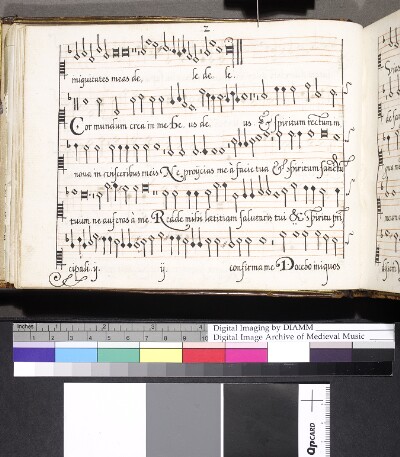 2
iniquitates meas de, le de. le.
Cor mundum crea in me De. us de. us & spiritum rectum in
noua in visceribus meis Ne proijcias me à facie tua & spiritum sanctu
tuum ne auferas à me Redde mihi lætitiam salutaris tui & Spiritu pri
cipali. ij. ij. confirma me Docebo iniquos
inches 1 2 3 4
Digital Imaging by DIAMM
Digital Image Archive of Medieval Music
QPCARD